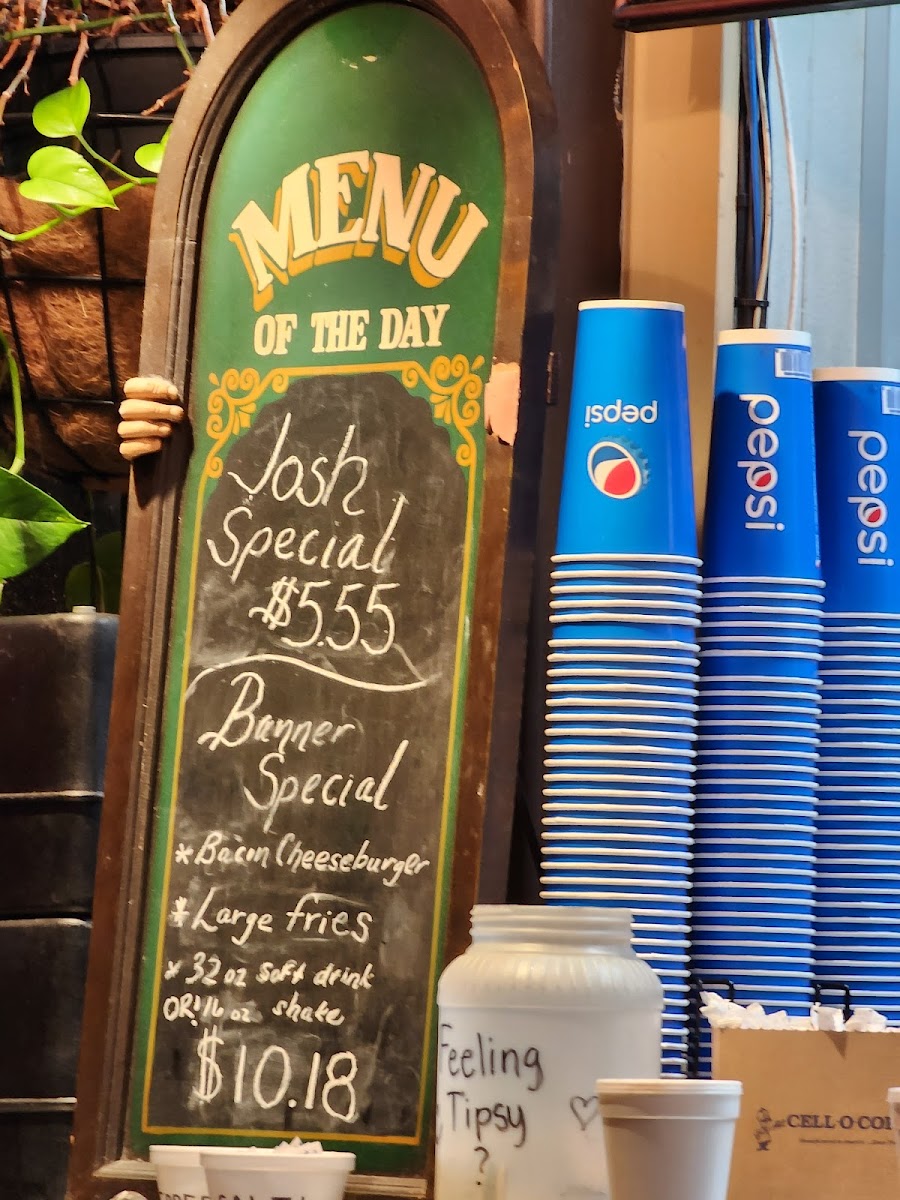 MENU
OF THE DAY
Josh
Special
$5.55
Banner
Special
* Bacon Cheeseburger
* Large fries
* 32 oz soft drink
OR 16 oz shake
$10.18
pepsi
pepsi
pepsi
Feeling
Tipsy
?
CELL-O-CO